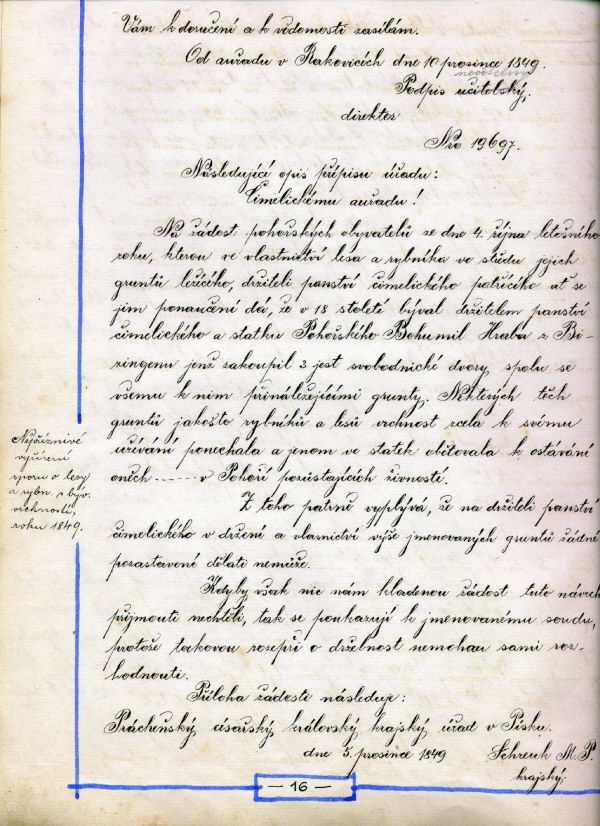 Vám k doručení a k vědomosti zasílám.
Od auřadu v Rakovicích dne 10 prosince 1849.
Podpis učitelský,
direktor
Nro 19697.
Následující opis přípisu úřadu:
Čimelickému auřadu!
Na žádost pohořských obyvatelů ze dne 4. října letošního
roku, kterou ve vlastnictví lesa a rybníka ve středu jejich
gruntů ležícího, držiteli panství čimelického patřícího ať se
jim ponaučení dá, že v 18 století býval držitelem panství
čimelického a statku Pohořského Bohumil Hraba z Bi-
zingenu jenž zakoupil 3 jest svobodnické dvory, spolu se
všemu k nim přináležejícími grunty. Některých těch
gruntů jakožto rybníků a lesů vrchnost zcela k svému
užívání ponechala a jenom ve statek obětovala k ostávání
oněch ........ v Pohoří pozůstajících živností.
Z toho patrně vyplývá, že na držiteli panství
čimelického v držení a vlasnictví výše jmenovaných gruntů žádné
pozastavení dělati nemůže.
Kdyby však nic nám kladenou žádost tuto návrh
přijmouti nechtěli, tak se poukazují k jmenovanému soudu,
protože takovou rozepři o držebnost nemohau sami roz-
hodnouti.
Příloha žádosti následuje:
Prácheňský císařský královský krajský úřad v Písku.
dne 5. prosince 1849 Schrenk M. P.
krajský;
Nepříznivé
vyřízení
sporu o lesy
a rybn. s býv.
vrchností,
roku 1849.
— 16 —